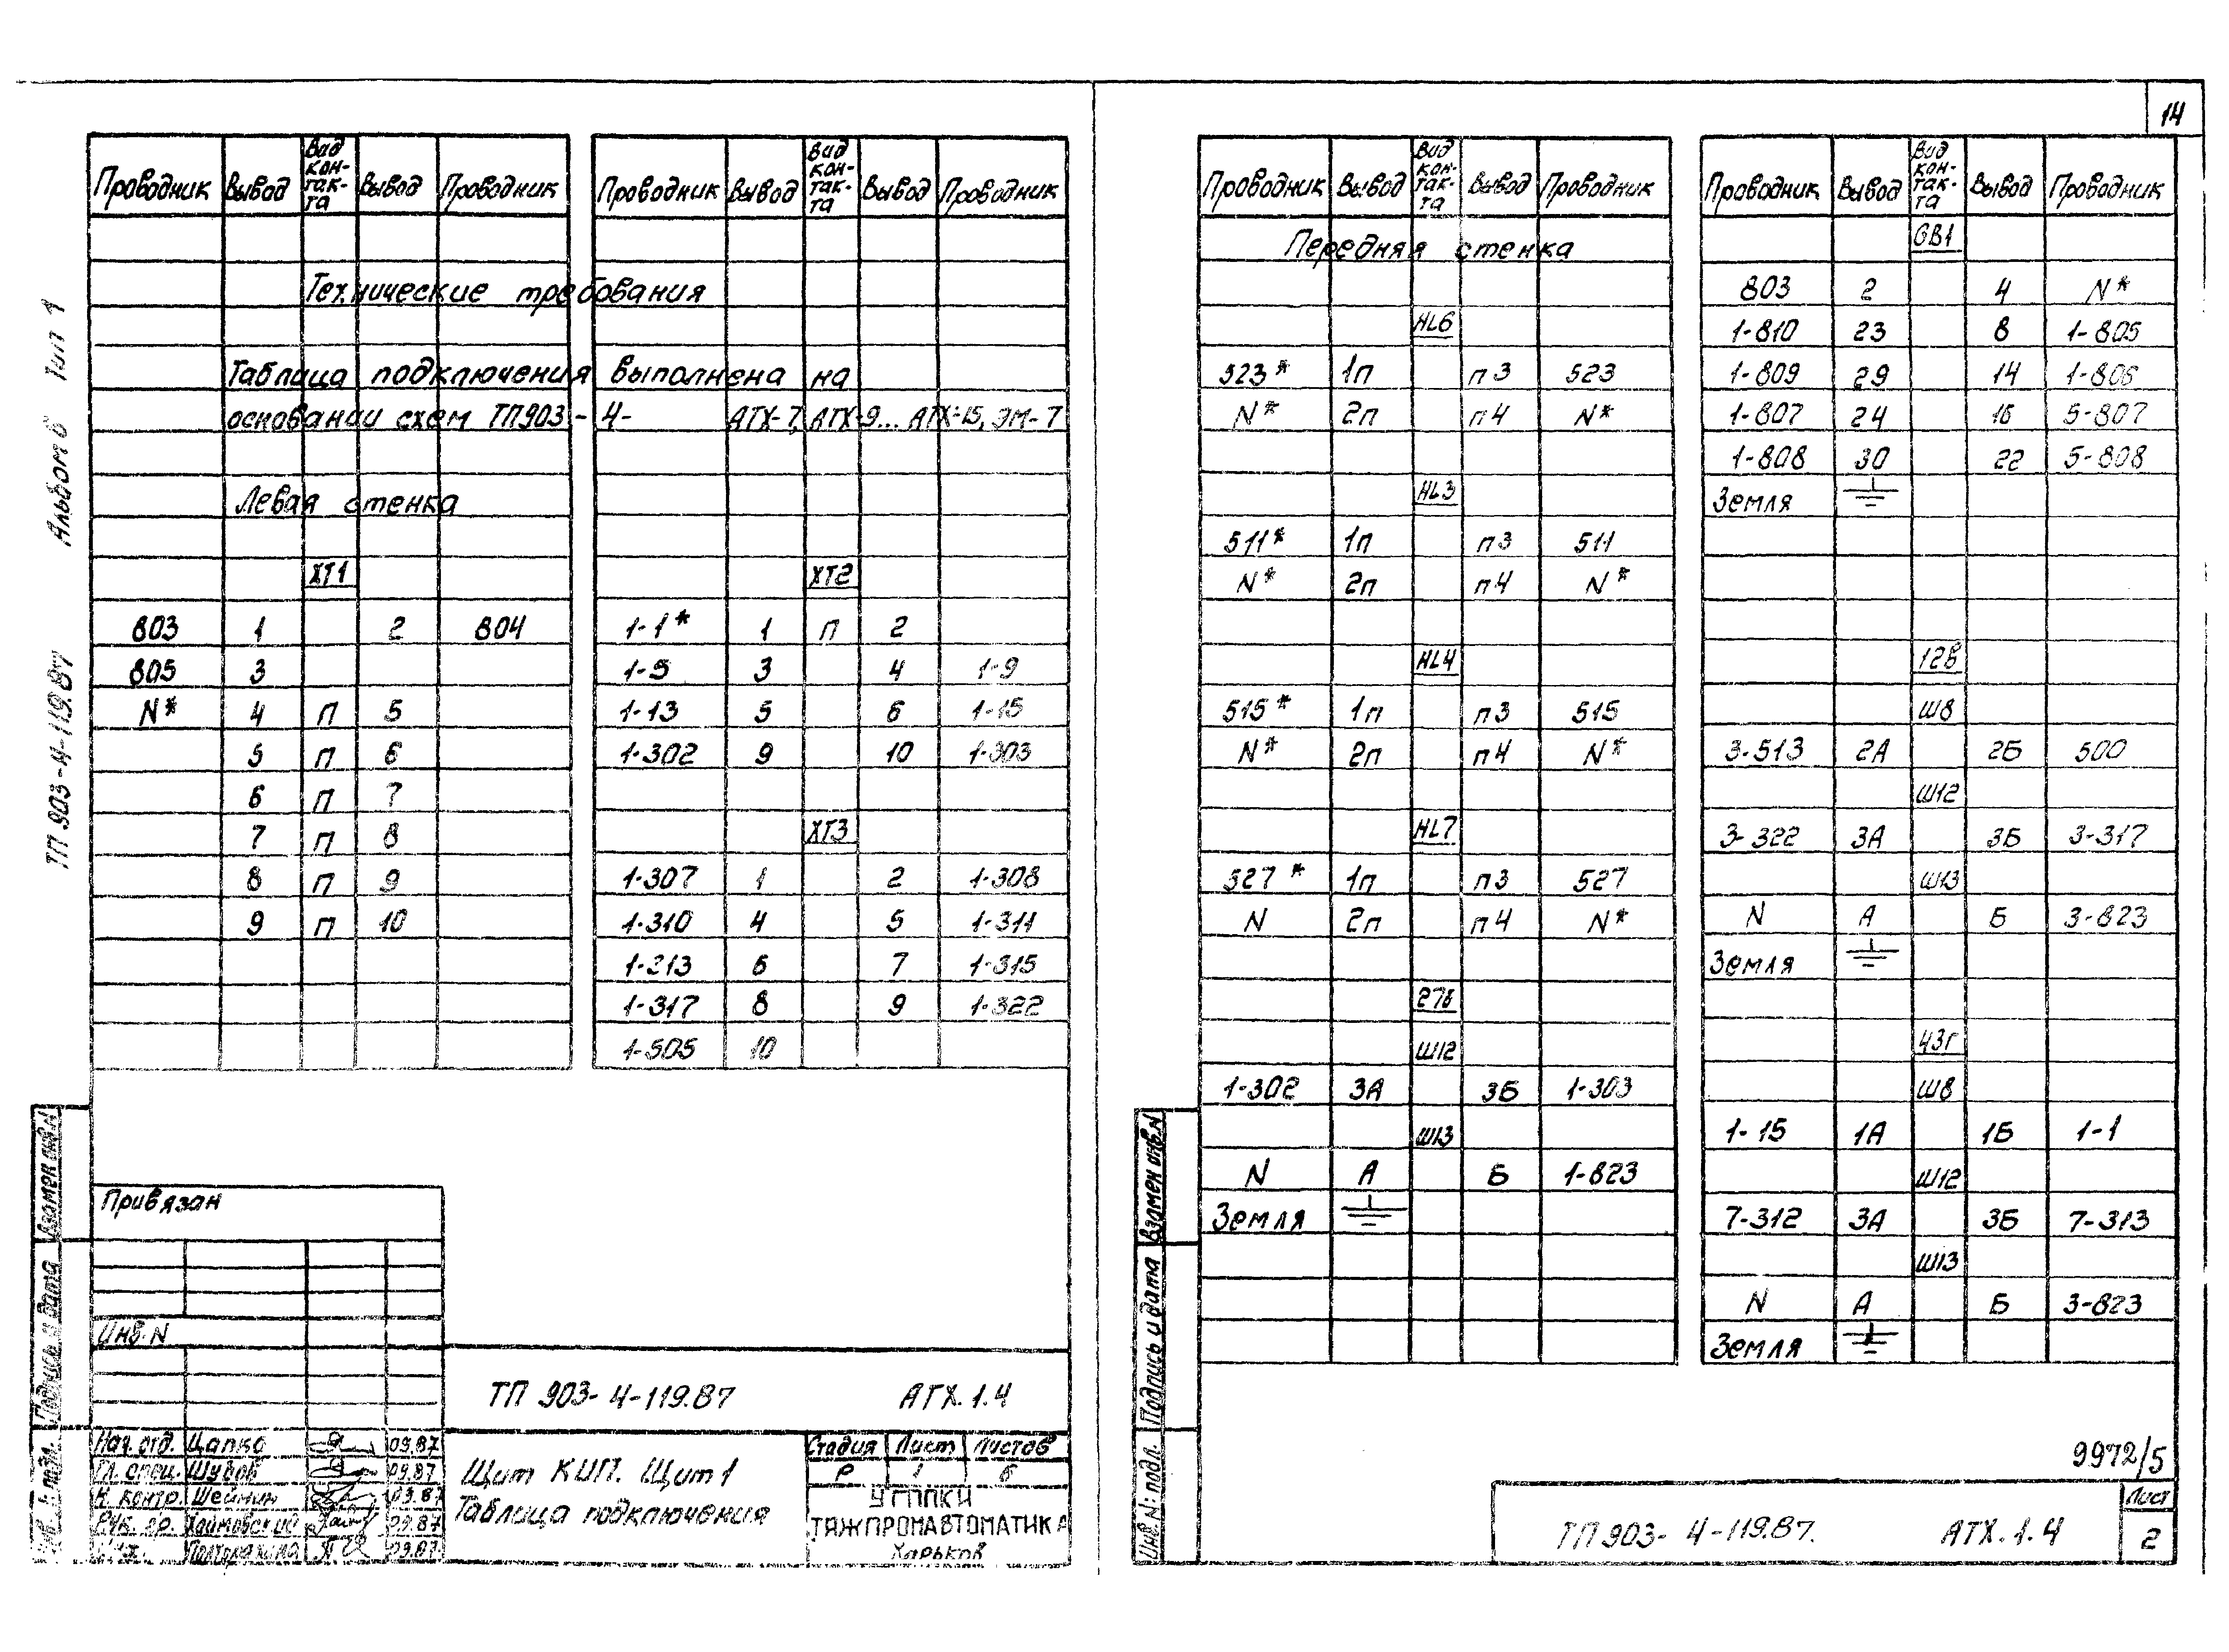 14
Альбом 6 Тип 1
ТП 903-4-119.87
Проводник Вывод Вид контакта Вывод Проводник
Технические требования
Таблица подключения выполнена на
основании схем ТП903-4- АТХ-7, АТХ-9... АТХ-15, ЭМ-7
Левая стенка
ХТ1
803 1 2 804
805 3
N* 4 П 5
5 П 6
6 П 7
7 П 8
8 П 9
9 П 10
Проводник Вывод Вид контакта Вывод Проводник
ХТ2
1-1* 1 П 2
1-5 3 4 1-9
1-13 5 6 1-15
1-302 9 10 1-303
ХТ3
1-307 1 2 1-308
1-310 4 5 1-311
1-213 6 7 1-315
1-317 8 9 1-322
1-505 10
Привязан
Инв. N
Взамен инв. N
Подпись и дата
ТП 903-4-119.87 АТХ.1.4
Нач. отд. Цапко 09.87
Гл. спец. Шувов 09.87
Н. контр. Шейнин 09.87
Рук. гр. Хаймовский 09.87
09.87
Щит КИП. Щит 1
Таблица подключения
Стадия Лист Листов
Р 1 6
УГППКИ
ТЯЖПРОМАВТОМАТИКА
Харьков
Проводник Вывод Вид контакта Вывод Проводник
Передняя стенка
HL6
523* 1п п3 523
N* 2п п4 N*
HL3
511* 1п п3 511
N* 2п п4 N*
HL4
515* 1п п3 515
N* 2п п4 N*
HL7
527* 1п п3 527
N 2п п4 N*
27в
Ш12
1-302 3А 3Б 1-303
Ш13
N А Б 1-823
Земля
Проводник Вывод Вид контакта Вывод Проводник
GB1
803 2 4 N*
1-810 23 8 1-805
1-809 29 14 1-806
1-807 24 16 5-807
1-808 30 22 5-808
Земля
12в
Ш8
3-513 2А 2Б 500
Ш12
3-322 3А 3Б 3-317
Ш13
N А Б 3-823
Земля
43г
Ш8
1-15 1А 1Б 1-1
Ш12
7-312 3А 3Б 7-313
Ш13
N А Б 3-823
Земля
Взамен инв. N
Подпись и дата
Инв. N: подл.
9972/5
ТП 903-4-119.87. АТХ.1.4
Лист
2